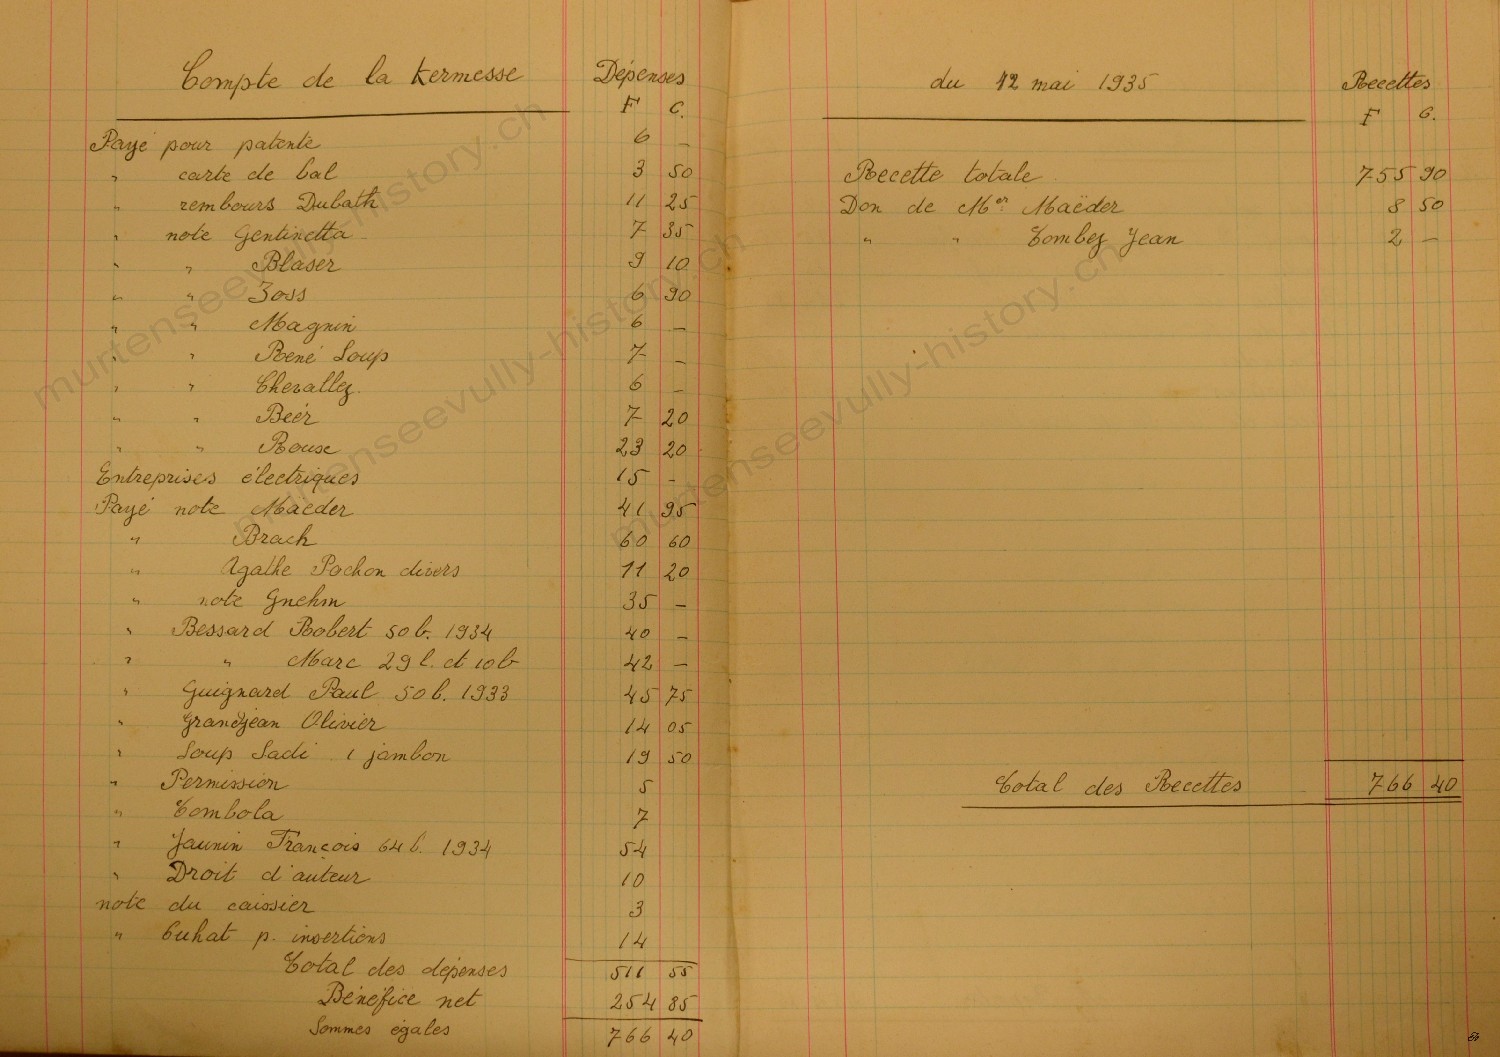 Compte de la Kermesse Dépenses
F C.
Payé pour patente 6 –
" carte de bal 3 50
" rembours Dubath 11 25
" note Gentinetta 7 35
" " Blaser 9 10
" " Zoss 6 90
" " Magnin 6 –
" " René Loup 7 –
" " Chevalley 6 –
" " Beér 7 20
" " 23 20
Entreprises électriques 15 -
Payé note Maeder 41 95
" Brach 60 60
" Agathe Pochon divers 11 20
" note Gnehm 35 –
" Bessard Robert 50 b. 1934 40 –
" " Marc 29 l. et 10 b 42 –
" Guignard Paul 50 b. 1933 45 75
" Grandjean Olivier 14 05
" Loup Sadi 1 jambon 19 50
" Permission 5
" Tombola 7
" Jaunin François 64 b. 1934 54
" Droit d'auteur 10
note du caissier 3
" Cuhat p. insertions 14
Total des dépenses 511 55
Bénéfice net 254 85
Sommes égales 766 40
du 12 mai 1935 Recettes
F C.
Recette totale 755 90
Don de Mer Maëder 8 50
" " Combez Jean 2 –
Total des Recettes 766 40
murtenseevully-history.ch
murtenseevully-history.ch
murtenseevully-history.ch